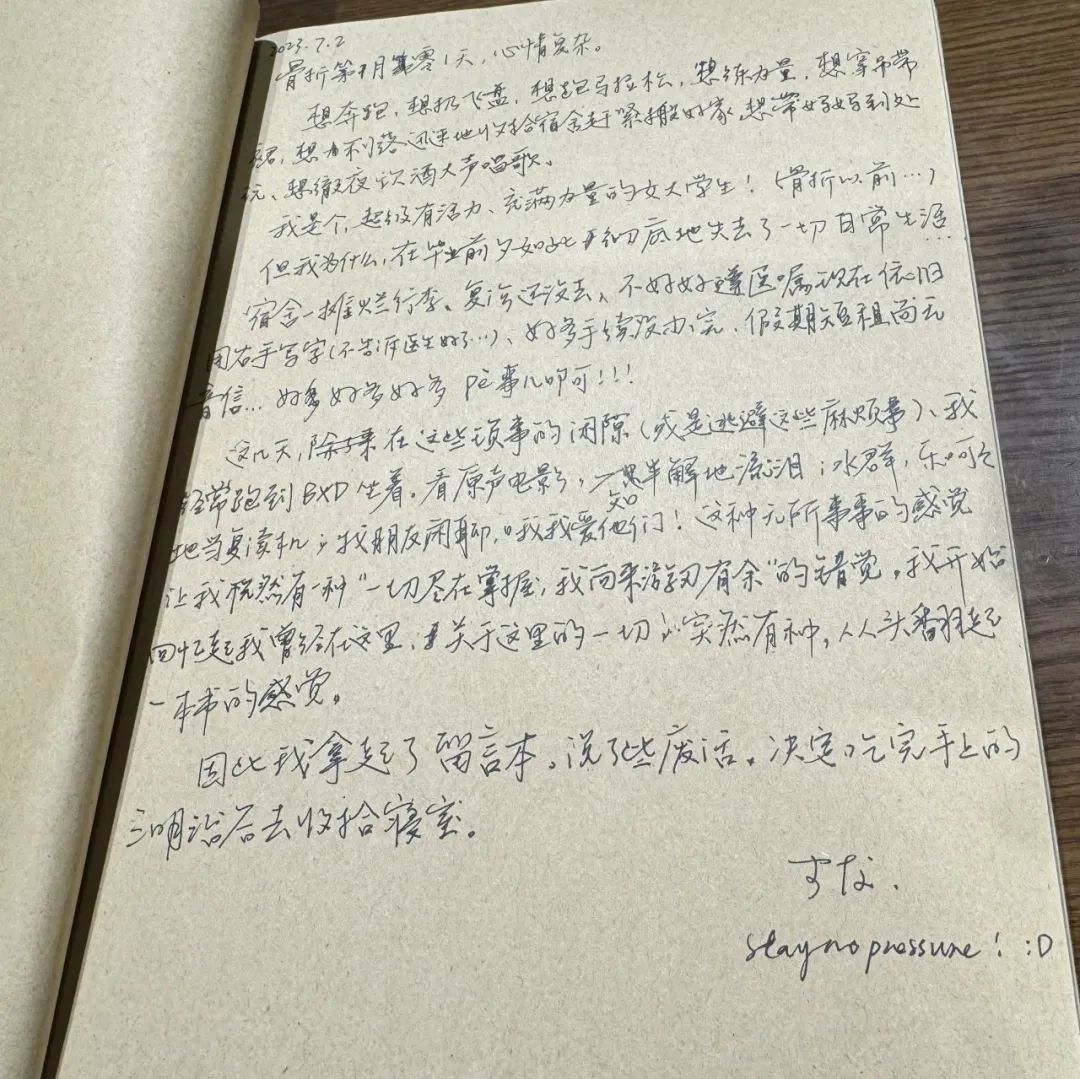 2023.7.2
骨折第1月零1天，心情复杂。
想奔跑，想扔飞盘，想跑马拉松，想练力量，想穿吊带
裙，想利落迅速地收拾宿舍赶紧搬好家，想带妈妈到处
玩、想彻夜饮酒大声唱歌。
我是个，超级有活力、充满力量的女大学生！（骨折以前…）
但我为什么，在毕业前夕如此彻底地失去了一切日常生活…
宿舍一摊烂行李、复诊还没去、不好好遵医嘱现在依旧
用右手写字（不告诉医生好了…）、好多手续没办完、假期短租尚无
音信… 好多好多好多 事儿叩可！！！
这几天，除在这些琐事的闲隙（或是逃避这些麻烦事）、我
经常跑到BXD坐着。看原声电影，一知半解地流泪；水群，乐呵呵
地当复读机；找朋友闲聊，哦我爱他们！这种无所事事的感觉
让我恍然有一种“一切尽在掌握，我向来游刃有余”的错觉。我开始
回忆起我曾经在这里、关于这里的一切；突然有种，从头翻起
一本书的感觉。
因此我拿起了留言本。说了些废话。决定吃完手上的
三明治后去收拾寝室。
stay no pressure！:D